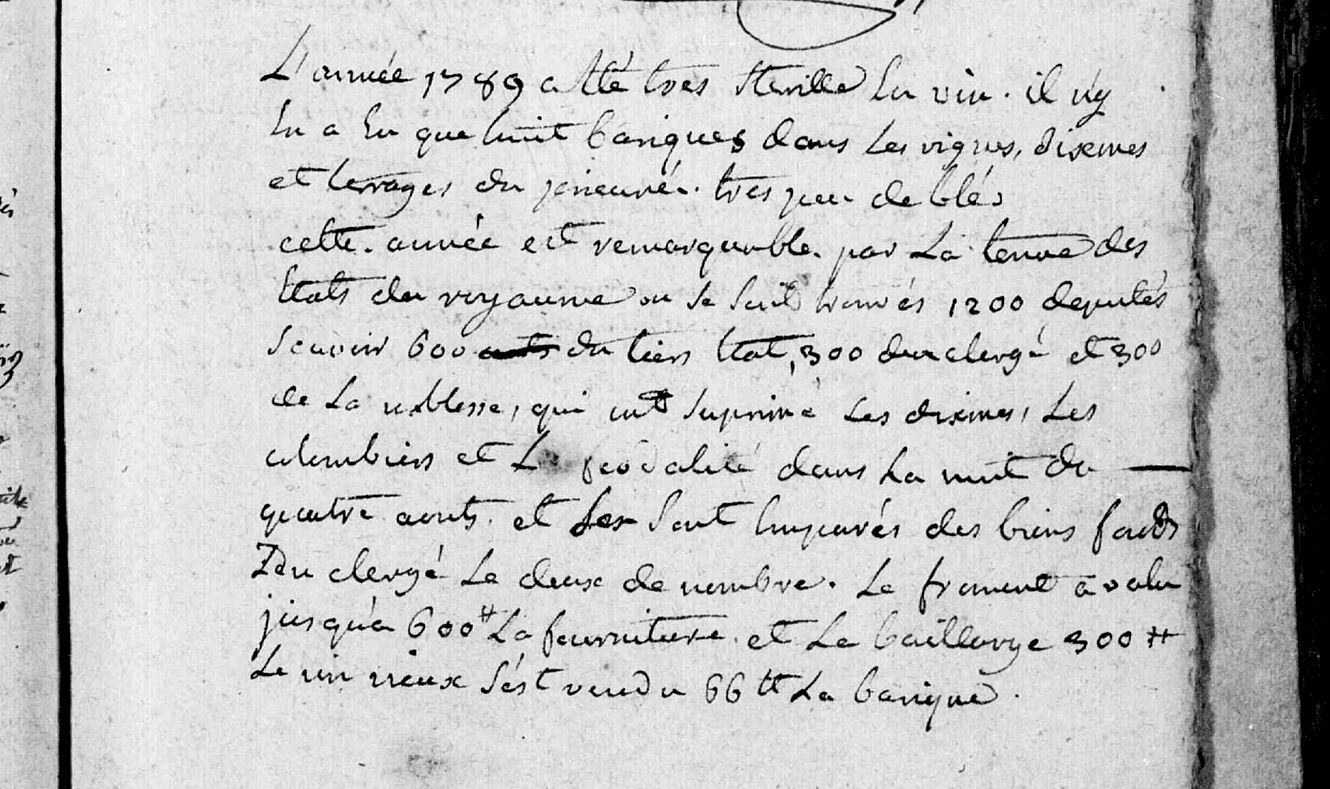 L'année 1789 a été tres sterille En vin. il n'y
En a Eu que huit bariques dans Les vignes, dixmes
et terrages du prieuré. tres peu de blés
cette année est remarquable par La tenue des
Etats du royaume ou se sont trouvés 1200 deputés
scavoir 600 du tiers Etat, 300 du clergé et 300
de La noblesse, qui ont suprimé Les dixmes, Les
colombiers et La feodalité dans La nuit du
quatre aouts. et se sont Emparés des biens fonds
Du clergé Le deux de novembre. Le froment a valu
jusqu'a 600tt La fourniture et La baillarge 300tt
Le vin vieux s'est vendu 66tt La barique.